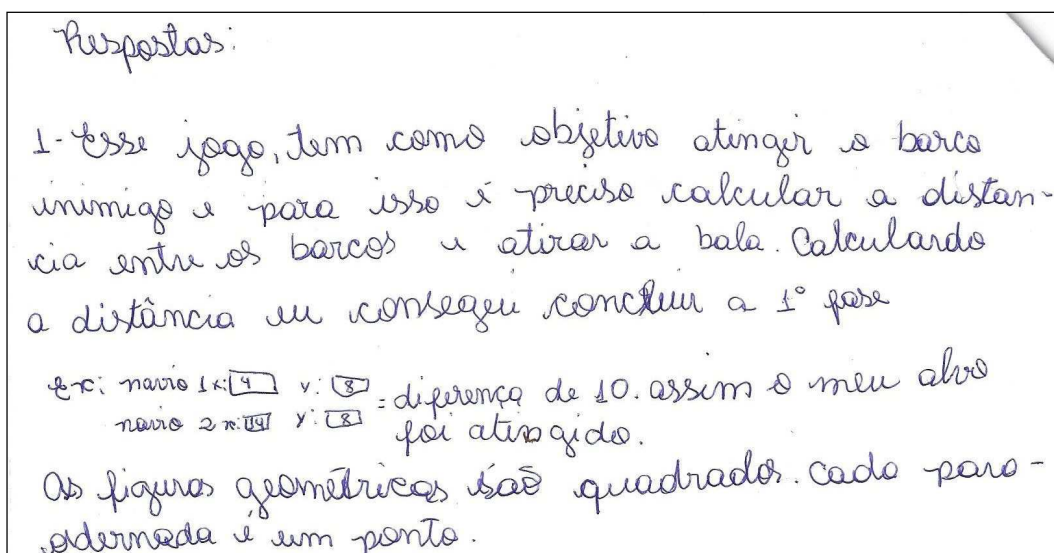 Respostas:
1- Esse jogo, tem como objetivo atingir o barco
inimigo e para isso é preciso calcular a distan-
cia entre os barcos e atirar a bala. Calculando
a distância eu consegui concluir a 1° fase
Ex: navio 1 x: 4 y: 8 = diferença de 10. assim o meu alvo
navio 2 x: 14 y: 8 foi atingido.
As figuras geométricas são quadrados. cada para-
odernada é um ponto.